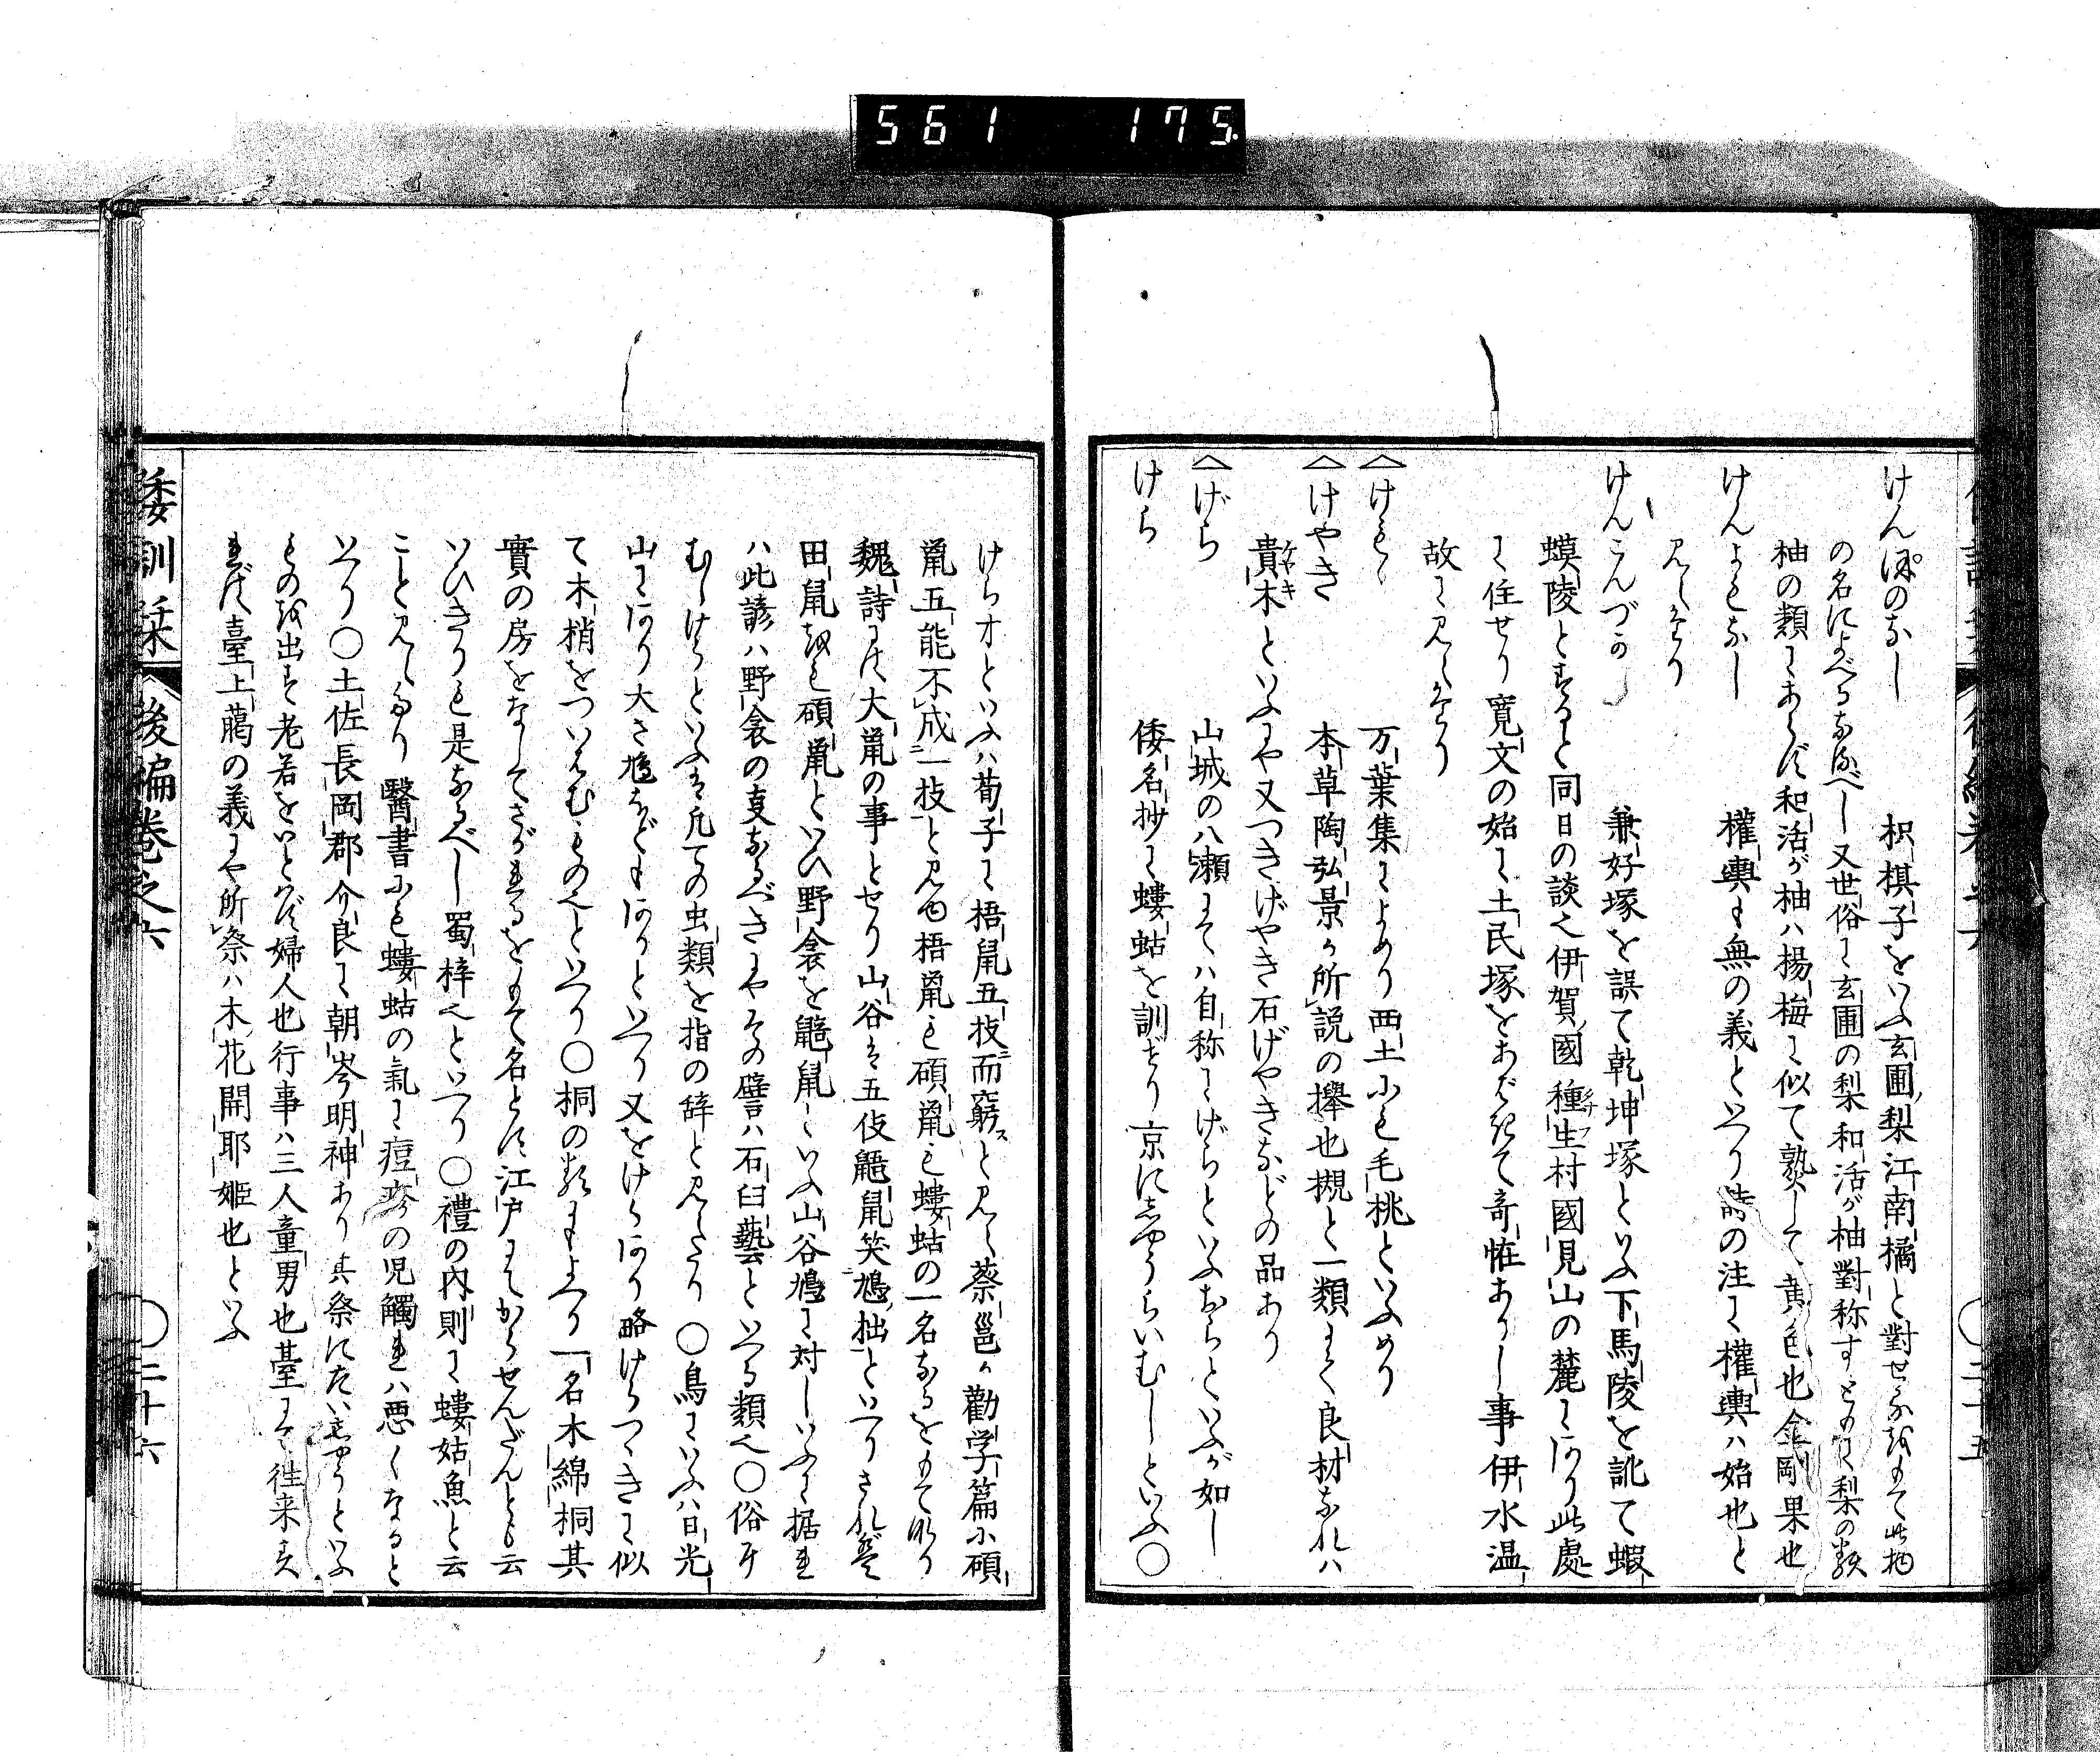 561 175
けんぽのなし 枳椇子をいふ玄圃梨江南橘と對せるをもて此物
の名によべるなるべし又世俗に玄圃の梨和活が柚對称すともに梨の類
柚の類にあらず和活が柚ハ楊梅に似て熟して黄色也金剛果也
けんよもなし 權輿も無の義といへり詩の注に權輿ハ始也と
見えたり
けんこんづか 兼好塚を誤て乾坤塚といふ下馬陵を訛て蝦
蟆陵とすると同日の談也伊賀國種生村國見山の麓にあり此處
に住せり寛文の始に土民塚をあばきて竒恠ありし事伊水温
故に見えたり
けもゝ 万葉集によめり西土にも毛桃といふめり
けやき 本草陶弘景か所説の擧也槻と一類にて良材なれハ
貴木といふにや又つきげやき石げやきなどの品あり
げら 山城の八瀬にてハ自称にげらといふおらといふが如し
けら 倭名抄に螻蛄を訓ぜり京にしやうらいむしといふ〇
二十五
けら才といふハ荀子に梧鼠五技而窮スと見え蔡邕か勸学篇に碩
鼠五能不成一技と見ゆ梧鼠も碩鼠も螻蛄の一名なるをもて也
魏詩にハ大鼠の事とせり山谷は五伎鼯鼠笑鳩拙といへりされど
田鼠をも碩鼠といひ野衾を鼯鼠といふ山谷鳩に対しいふに据れ
ハ此諺ハ野衾の事なるべきにやその譬ハ石臼藝といへる類也〇俗に
むしけらといふは凡ての虫類を指の辞と見えたり〇鳥にいふハ日光
山にあり大さ鳩ほどもありといへり又をけらあり略けらつゝきに似
て木梢をついばむものといへり〇桐の類によべり一名木綿桐其
實の房をなしてさがれるをもて名とす江戸にてからせんだんとも云
いひきりも是なるべし蜀梓也といへり〇禮の内則に螻姑魚と云
こと見えたり醫書にも螻蛄の氣に痘疹の児觸れハ悪くなると
いへり〇土佐長岡郡介良に朝岑明神あり其祭にたいしやうといふ
もの出す老若をいとはず婦人也行事ハ三人童男也臺にて徃来す
れバ臺上﨟の義にや所祭ハ木花開耶姫也といふ
倭訓栞 後編巻之六 二十六